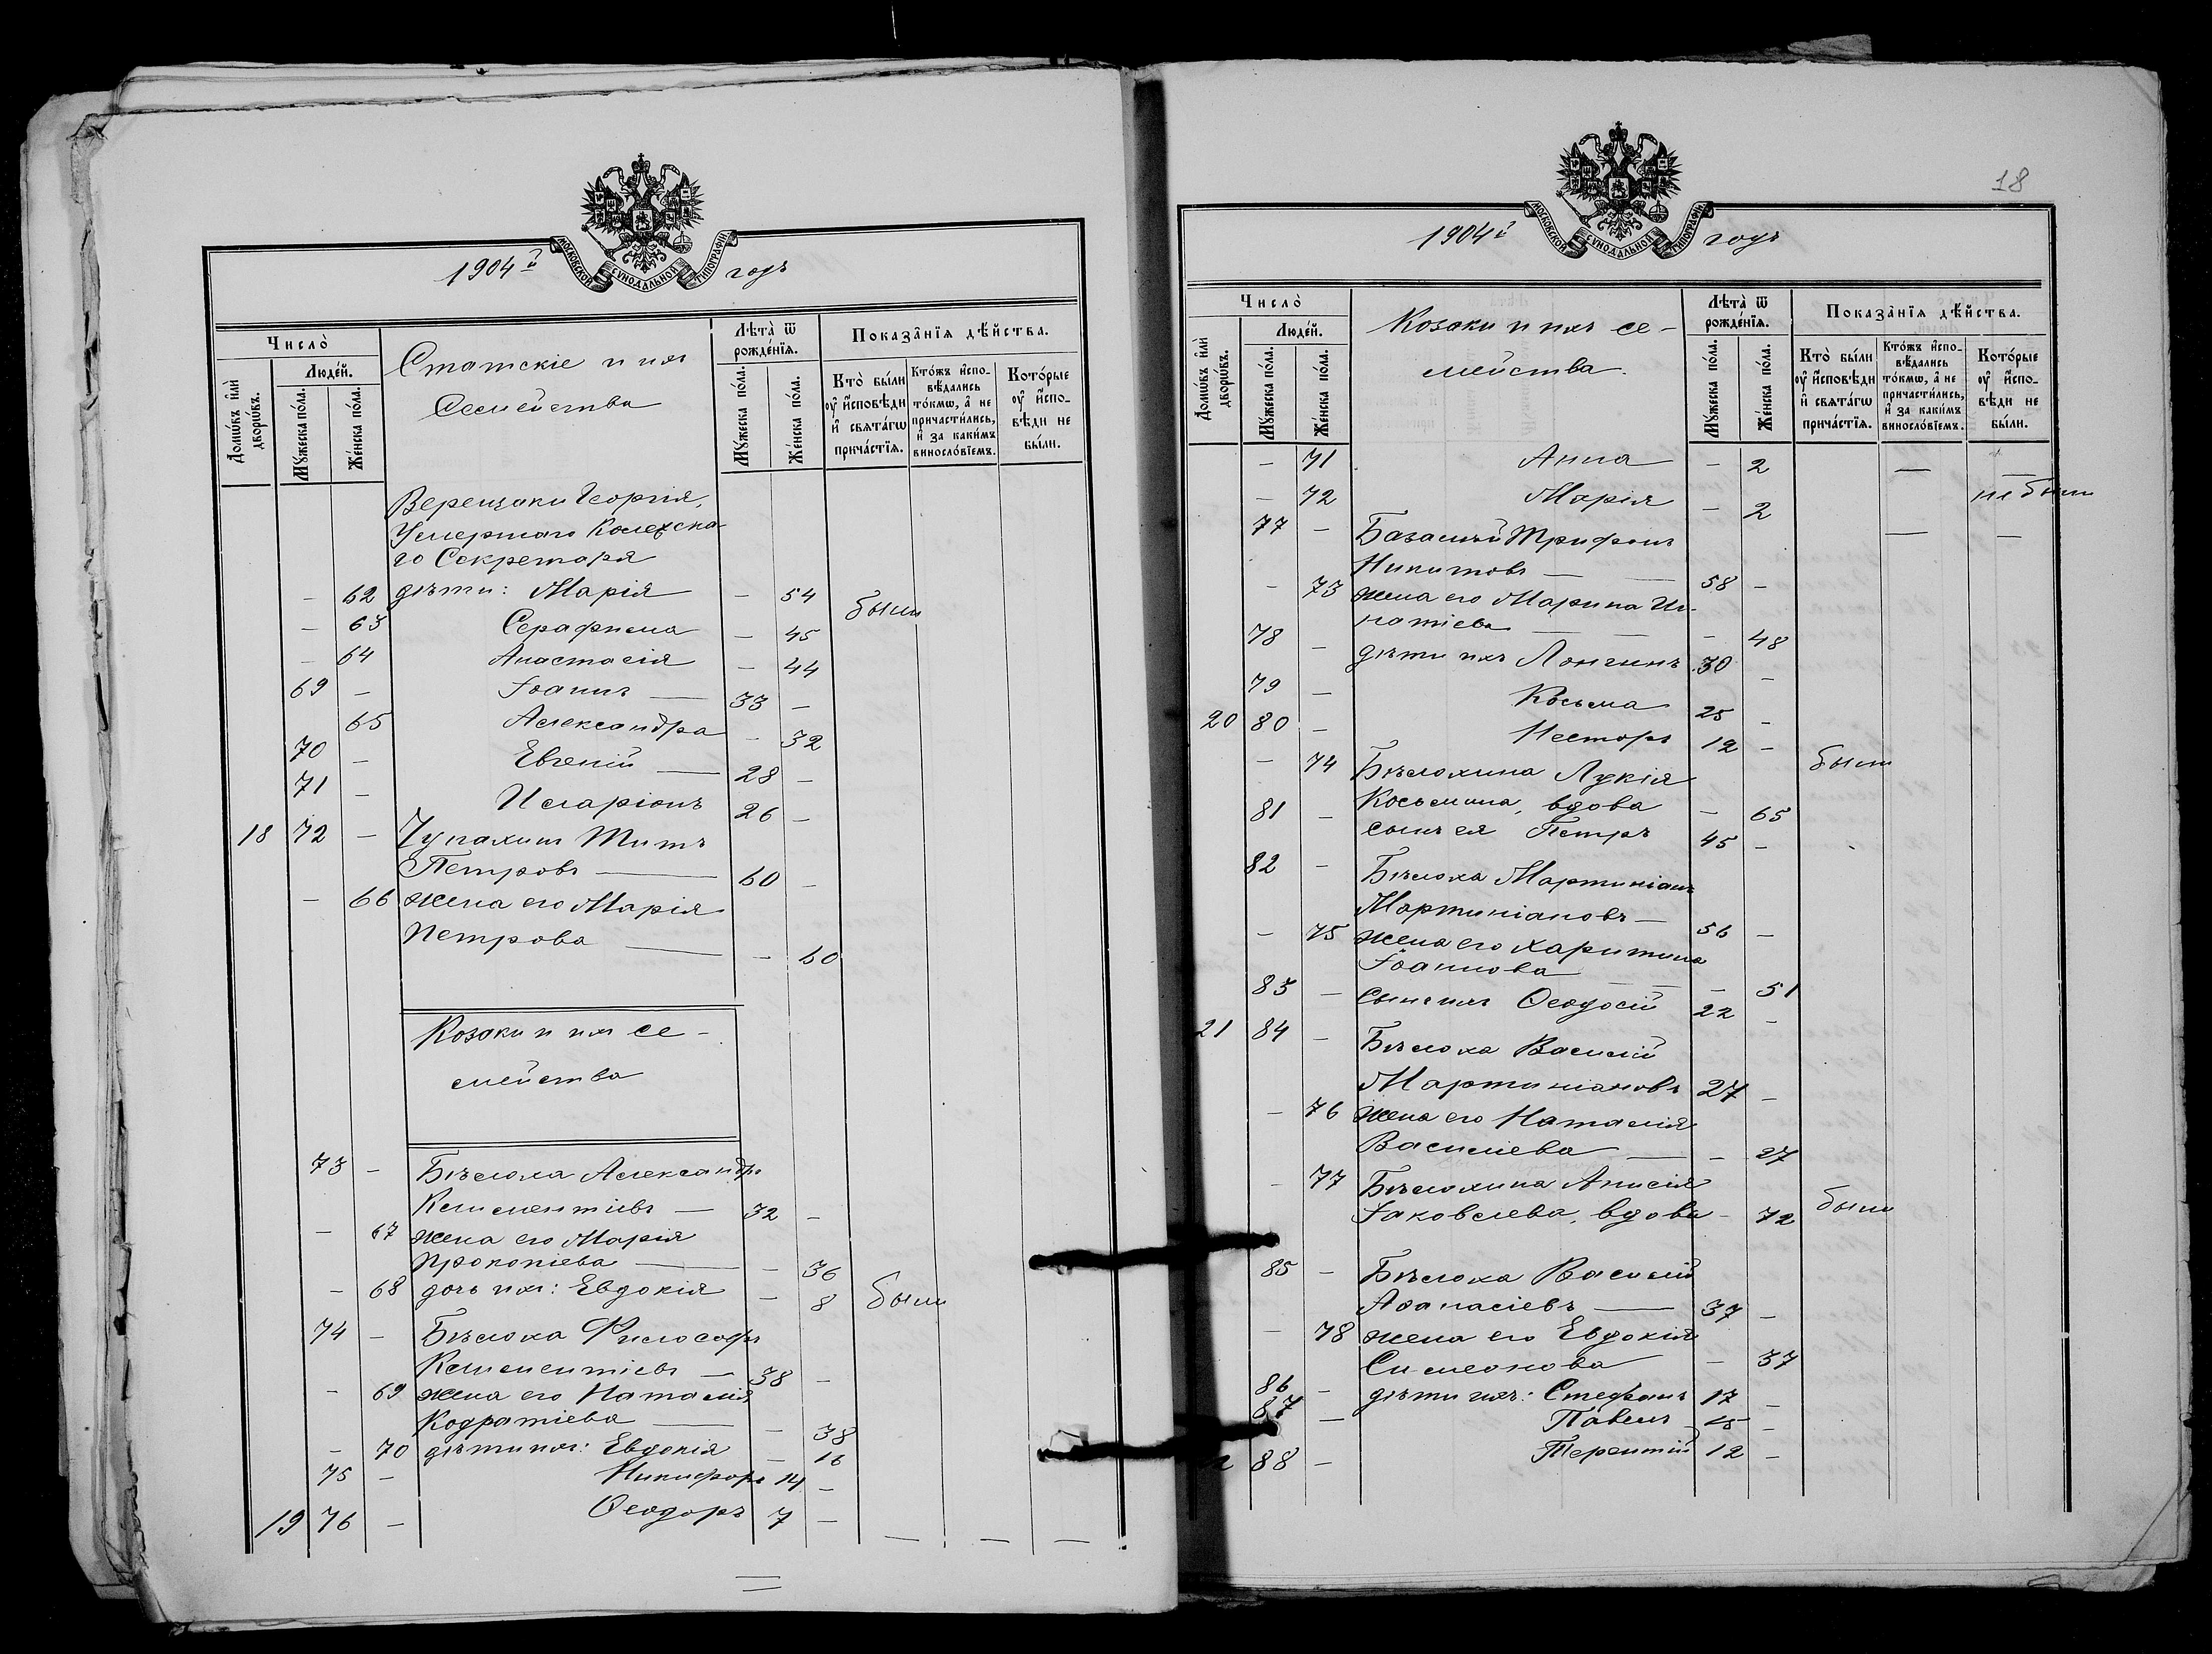 МОСКОВСКОЙ СѴНОДАЛЬНОЙ ТИПОГРАФІИ
1904й годъ
Число̀
Людей.
Домѡвъ или дворѡвъ.
Мꙋжеска пола.
Женска пола.
Статскіе и ихъ
Семейства
Лѣта ѿ рожденїѧ.
Мꙋжеска пола.
Женска пола.
Показанїѧ дѣйства.
Кто были оу исповѣди и свѧтагѡ причастїѧ.
Ктожъ исповѣдались токмѡ, а не причастились, и за какимъ винословїемъ.
Которые оу исповѣди не были.
Верещаки Георгія,
Умершаго Колежска
го Секретаря
– 62 дѣти: Марія – 54 были
– 63 Серафима – 45
– 64 Анастасія – 44
69 – Іоаннъ — 33 –
65 Александра – 32
70 – Евгеній — 28 –
71 – Иларіонъ 26 –
18 72 – Титъ
Петровъ — 60 –
– 66 жена его Марія
Петрова — – 60
Козаки и ихъ се-
мейства
73 – Бѣлоха Александръ
Климентіевъ — 32 –
– 67 жена его Марія
Прокопіева — – 36
– 68 дочь ихъ: Евдокія – 8 были
74 – Бѣлоха Философъ
Климентіевъ — 38 –
– 69 жена его Наталія
Кодратіева — – 38
– 70 дѣти ихъ: Евдокія – 16
75 – Никифоръ 14 –
19 76 – Ѳеодоръ 7 – – – –
18
МОСКОВСКОЙ СѴНОДАЛЬНОЙ ТИПОГРАФІИ
1904й годъ
Число̀
Людей.
Домѡвъ или дворѡвъ.
Мꙋжеска пола.
Женска пола.
Козаки и ихъ се-
мейства.
Лѣта ѿ рожденїѧ.
Мꙋжеска пола.
Женска пола.
Показанїѧ дѣйства.
Кто были оу исповѣди и свѧтагѡ причастїѧ.
Ктожъ исповѣдались токмѡ, а не причастились, и за какимъ винословїемъ.
Которые оу исповѣди не были.
– 71 Анна – 2 — —
– 72 Марія – 2 не были
77 – Трифонъ — —
Никитовъ — — 58 –
– 73 жена его Марина Иг-
натіева — — – 48
78 – дѣти ихъ Лонгинъ 30 –
79 – Косьма 25 –
20 80 – Несторъ 12 –
– 74 Бѣлохина Лукія были
Косьмина, вдова – 65
81 – сынъ ея Петръ 45 –
82 – Бѣлоха Мартиніанъ
Мартиніановъ — 56 –
– 75 жена его Харитина
Іоаннова — — – 51
83 – сынъ ихъ Ѳеодосій 22 –
21 84 – Бѣлоха Василій
Мартиніановъ 27 –
– 76 жена его Наталія
Василиева — – 27
– 77 Бѣлохина Анисія
Іаковлева, вдова – 72 были
85 – Бѣлоха Василій
Аѳанасіевъ — 37 –
– 78 жена его Евдокія
Симеонова – 37
86 – дѣти ихъ: Стефанъ 17 –
87 – Павелъ 15 –
88 – Терентій 12 –